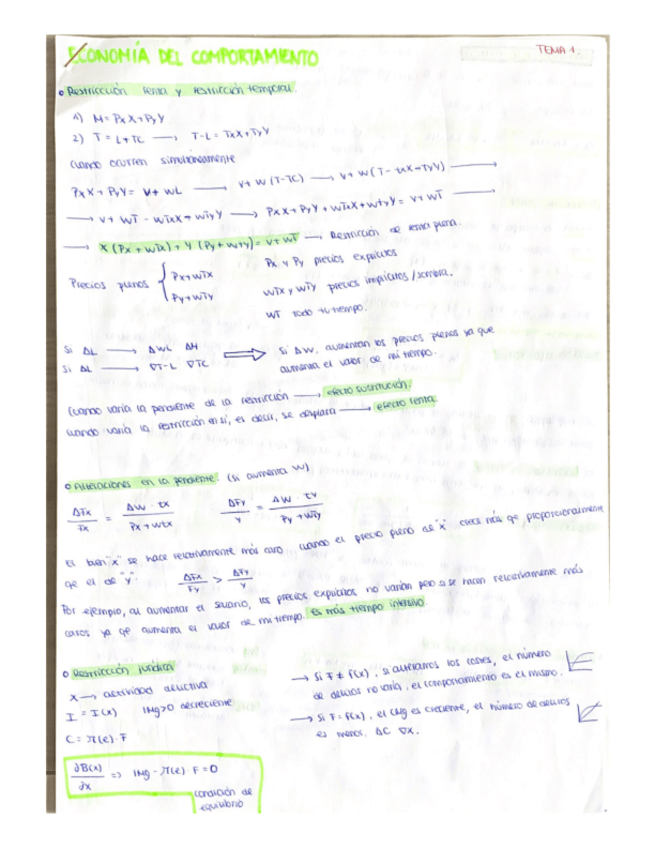 ECONOMÍA DEL COMPORTAMIENTO
TEMA 1.
Restricción renta y restricción temporal.
1) M = PxX + PyY
2) T = L + TC → T-L = TxX + TyY
Cuando ocurren simultáneamente
PxX + PyY = V + WL → V + W (T-TC) → V + W (T - txX - TyY) →
→ V + WT - WTxX - WTyY → PxX + PyY + WTxX + WtyY = V + WT →
→ X (Px + WTx) + Y (Py + Wty) = V + WT → Restricción de renta plena.
Precios plenos { Px + WTx
Py + WTy
Px y Py precios explícitos
WTx y WTy precios implícitos / sombra.
WT todo tu tiempo.
Si ΔL → ΔWL ΔM
Si ΔL → ∇T-L ∇TC
⇒ Si ΔW, aumentan los precios plenos ya que
aumenta el valor de mi tiempo.
Cuando varía la pendiente de la restricción → efecto sustitución.
Cuando varía la restricción en sí, es decir, se desplaza → efecto renta.
Alteraciones en la pendiente. (si aumenta W)
ΔFx/Fx = ΔW · tx / Px + Wtx
ΔFy/Y = ΔW · ty / Py + WTy
El bien "x" se hace relativamente más caro cuando el precio pleno de "x" crece más qe proporcionalmente
qe el de "y". ΔFx/Fy > ΔFy/Y
Por ejemplo, al aumentar el salario, los precios explícitos no varían pero si se hacen relativamente más
caros ya qe aumenta el valor de mi tiempo. Es más tiempo intensivo.
Restricción jurídica
X → actividad delictiva
I = I(x) IMg>0 decreciente
C = π(e) · F
∂B(x)/∂x => IMg - π(e) · F = 0
condición de
equilibrio
→ Si F ≠ f(x), si alteramos los costes, el número
de delitos no varía, el comportamiento es el mismo.
→ Si F = f(x), el CMg es creciente, el número de delitos
es menor. ΔC ∇x.